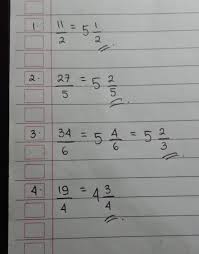 1. 11/2 = 5 1/2
2. 27/5 = 5 2/5
3. 34/6 = 5 4/6 = 5 2/3
4. 19/4 = 4 3/4